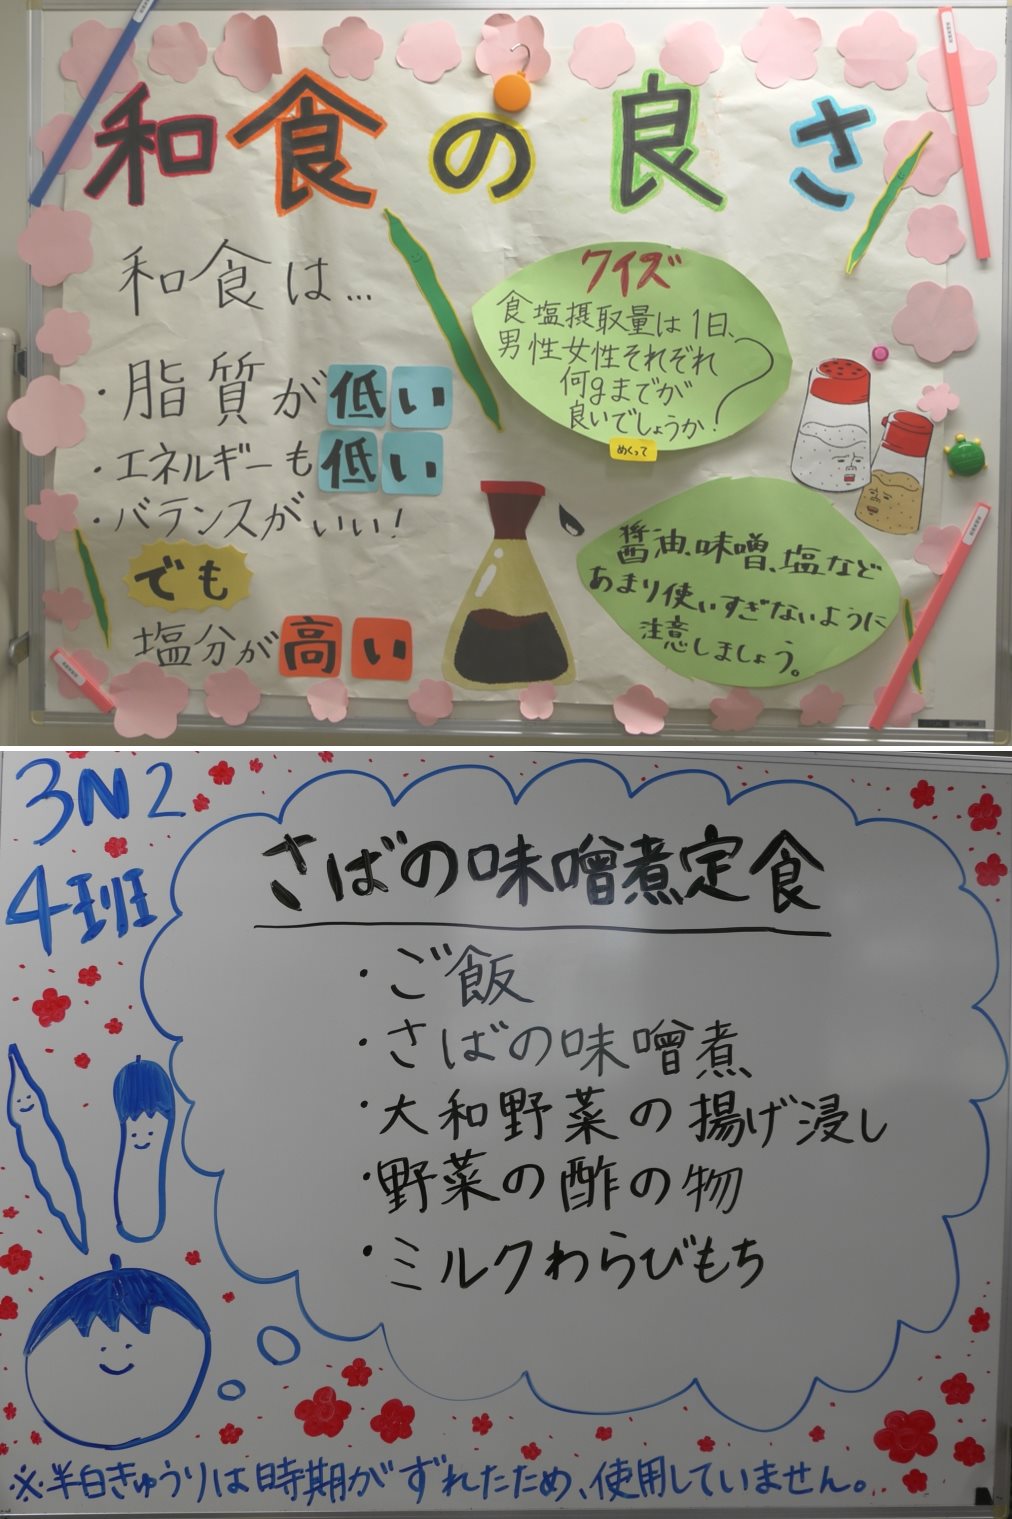 和食の良さ
和食は…
・脂質が低い
・エネルギーも低い
・バランスがいい!
でも
塩分が高い
クイズ
食塩摂取量は1日、
男性女性それぞれ
何gまでが
良いでしょうか?
めくって
醤油、味噌、塩など
あまり使いすぎないように
注意しましょう。
3N2
4班
さばの味噌煮定食
・ご飯
・さばの味噌煮
・大和野菜の揚げ浸し
・野菜の酢の物
・ミルクわらびもち
※半白きゅうりは時期がずれたため、使用していません。